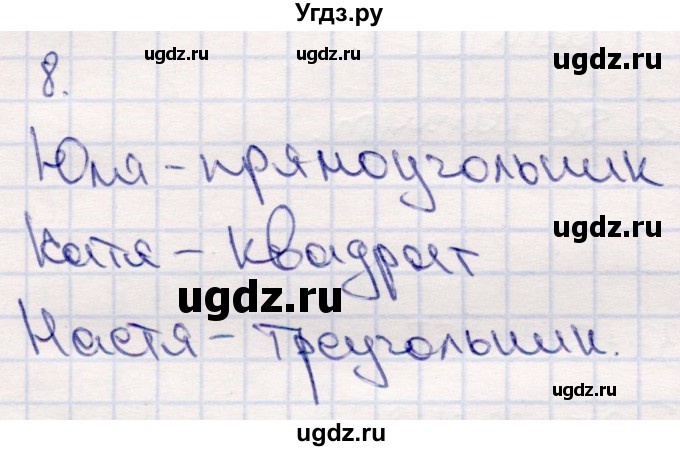 Угдз.ру
ugdz.ru ugdz.ru ugdz.ru
8.
Юля - прямоугольник
ugdz.ru
Катя - квадрат
ugdz.ru
ugdz.ru
Настя - треугольник.
ugdz.ru
ugdz.ru
ugdz.ru